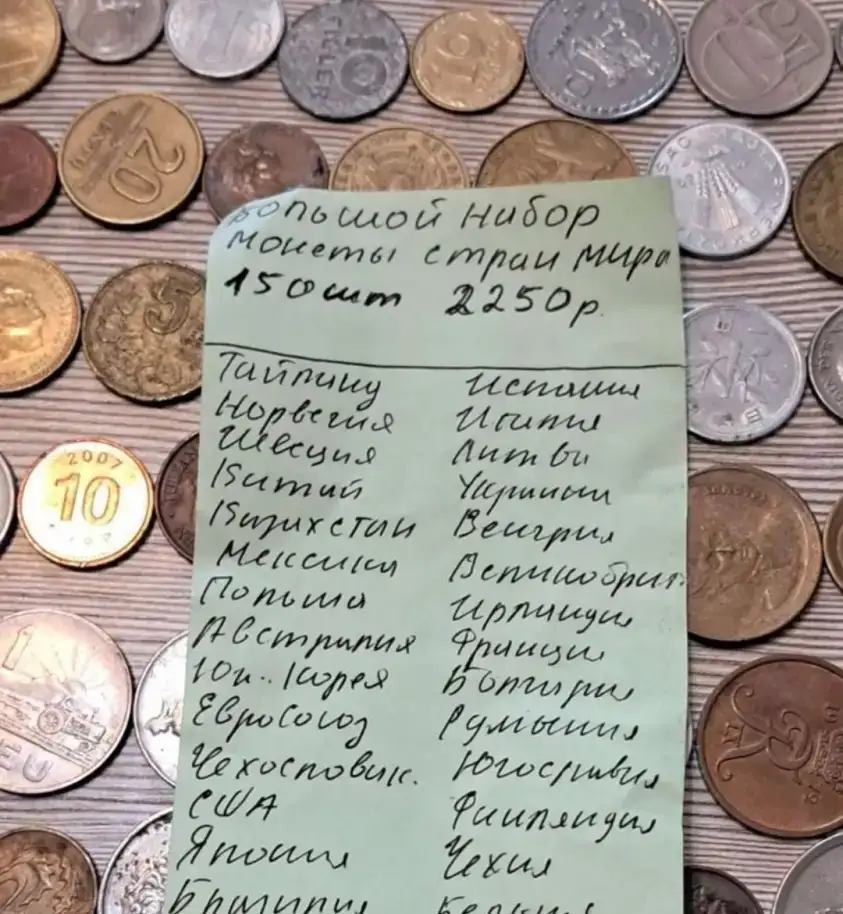 Большой набор
монеты стран мира
150шт 2250р.
Тайланд Испания
Норвегия Италия
Швеция Литва
Китай Украина
Казахстан Венгрия
Мексика Великобрит.
Польша Ирландия
Австралия Франция
Юж. Корея Болгария
Евросоюз Румыния
Чехословак. Югославия
США Финляндия
Япония Чехия
Бразилия Бельгия
10
FILLER
20
5
2007
10
1